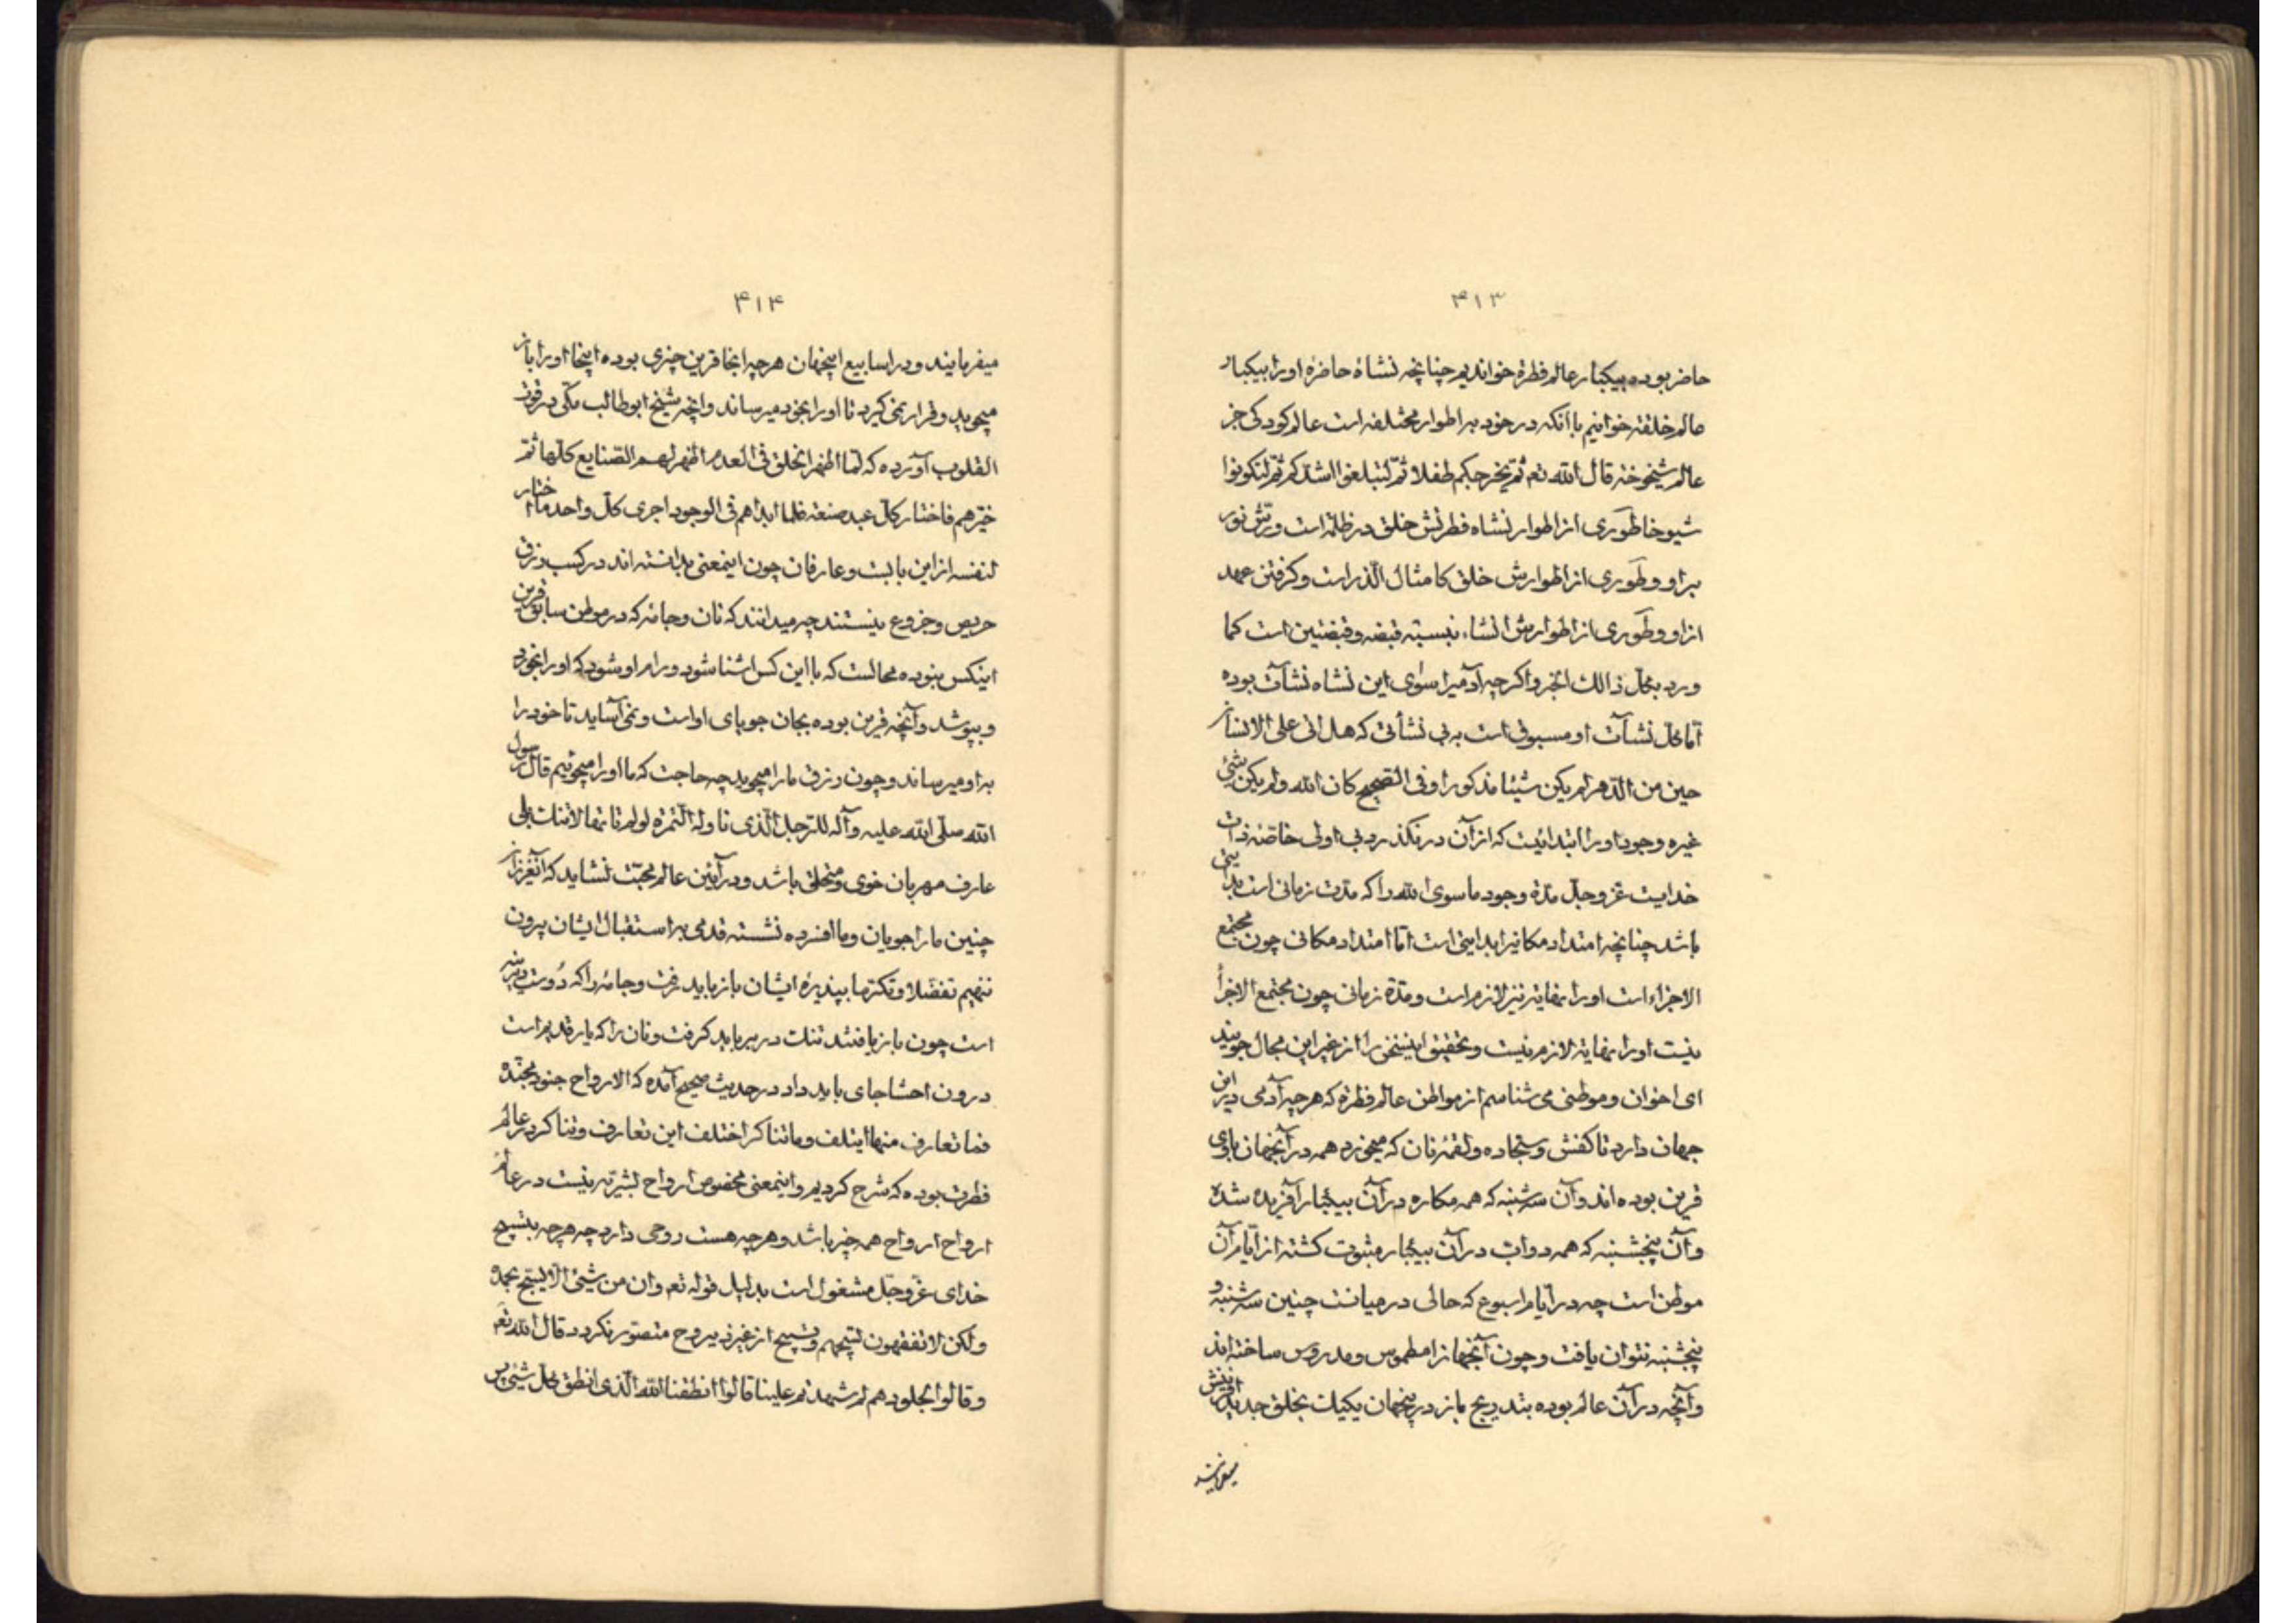 ۴۱۳
حاضر بوده بیکبار عالم فطرة خواندیم چنانچه نشاۀ حاضرۀ او را بیکبار
عالم خلقة خوانیم با آنکه در خود بر اطوار مختلفه است عالم کودکی جز
عالم شیخوخة قال الله تعم ثم یخرجکم طفلا ثم لتبلغوا اشدکم ثم لتکونوا
شیوخا طَوری از اطوار نشاه فطرتش خلق در ظلمة است ورش نور
بر او و طَوری از اطوارش خلق کامثال الذر است و کرفتن عهد
از او و طَوری از اطوارش انشاء نسبته قبضه و قبضتین است کما
ورد بکل ذالک الخبر و اکر چه آدمیرا سوای این نشاه نشآت بوده
امّا کل نشآت او مسبوق است به بی نشأتی که هل اتی علی الانسان
حین من الدّهر لم یکن شیئا مذکورا و فی الصّحیح کان الله و لم یکن شئ
غیره وجود او را ابتدائیست که از آن در نکذرد بی اولی خاصّۀ ذات
خدایست عزّ و جلّ مدّۀ وجود ما سوی الله را که مدّت زمانی است بداینی
باشد چنانچه امتداد مکانیرا بداینی است امّا امتداد مکانی چون مجتمع
الاجزاء است او را نهایة نیز لازم است و مدّة زمانی چون مجتمع الاجزأ
نیست او را نهایة لازم نیست و تحقیق اینسخن را از غیر این مجال جویند
ای اخوان و موطنی می شناسم از مواطن عالم فطرة که هر چه آدمی در این
جهان دارد تا کفش و سجّاده و لقمۀ نان که میخورد همه در آنجهان با وی
قرین بوده اند و آن سه شنبه که همه مکاره در آن بیکبار آفریده شده
و آن پنجشنبه که همه دوابّ در آن بیکبار مبثوث کشته از ایّام آن
موطن است چه در ایّام اسبوع که حالی در میانست چنین سه شنبه و
پنجشنبه نتوان یافت و چون آنجهانرا مطموس و مدروس ساخته اند
و آنچه در آن عالم بوده بتدریج باز در اینجهان یکیک بخلق جدید آفرینش
میفرمایند
۴۱۴
میفرمایند و در اسابیع اینجهان هر چه انجا قرین چیزی بوده اینجا او را باز
میجوید و قرار نمی کیرد تا او را بخود میرساند و انچه شیخ ابو طالب مکّی در قوت
القلوب آورده که لمّا اظهر الخلق فی العدم اظهر لهم الصّنایع کلّها ثمّ
خیّرهم فاختار کلّ عبد صنعة فلما ابداهم فی الوجود اجری کل واحد ما اختار
لنفسه از این بابست و عارفان چون اینمعنی بدانسته اند در کسب رزق
حریص و جزوع نیستند چه میدانند که نان و جامه که در موطن سابق قرین
اینکس نبوده محالست که با این کس اشنا شود و رام او شود که او را بخورد
و بپوشد و آنچه قرین بوده بجان جویای او است و نمی آساید تا خود را
به او میرساند و چون رزق ما را میجوید چه حاجت که ما او را میجوئیم قال رسول
الله صلّی الله علیه و آله للرّجل الّذی ناوله التّمرة لو لم تاتها لاتتک بلی
عارف مهربان خوی و متخلق باشد و در آئین عالم محبّت نشاید که آنعزیزان
چنین ما را جویان و ما افسرده نشسته قدمی بر استقبال ایشان بیرون
ننهیم تفضّلا و تکرّما بپذیرۀ ایشان باز باید رفت و جامه را که دُوست دیرینه
است چون باز یافتند تنک در بر باید کرفت و نان را که یار قدیم است
درون احشا جای باید داد در حدیث صحیح آمده که الارواح جنود مجنّدة
فما تعارف منها ایتلف و ما تناکر اختلف این تعارف و تناکر در عالم
فطرت بوده که شرح کردیم و اینمعنی مخصوص ارواح بشریّه نیست در عالم
ارواح ارواح همه چیز باشد و هر چه هست روحی دارد چه هر چه بتسبیح
خدای عزّ و جلّ مشغول است بدلیل قوله تعم و ان من شئ الّا یسبّح بحمده
ولکن لا تفقهون تسبیحهم و تسبیح از غیر ذیروح متصوّر نکردد قال الله تعَم
و قالوا لجلودهم لم شهدتم علینا قالوا انطقنا الله الّذی انطق کل شئ پس